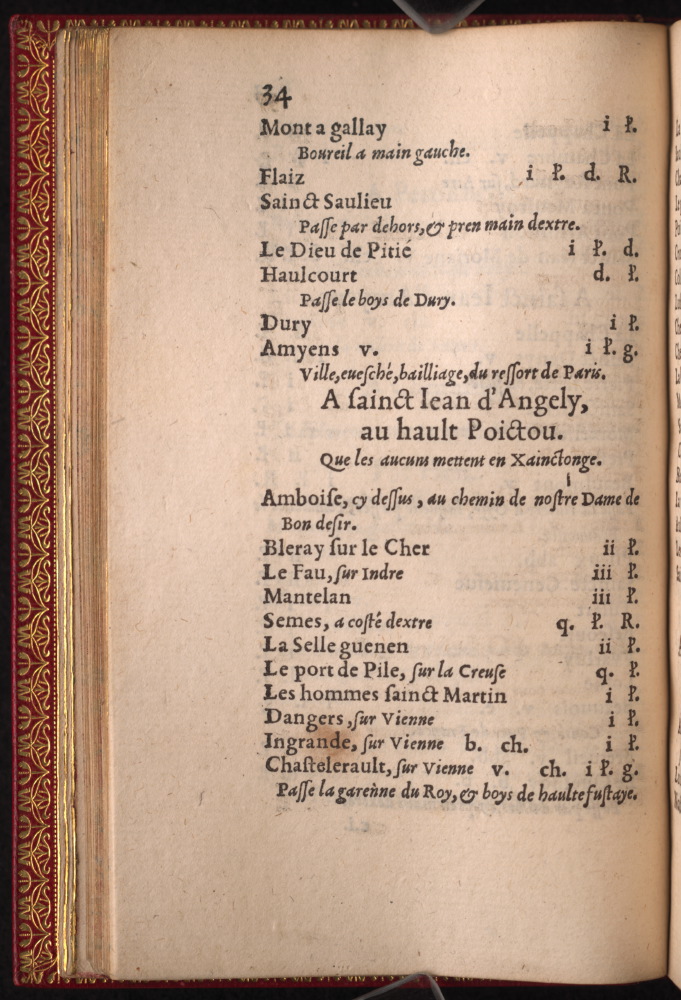 34
Mont a gallay i ł.
Boureil a main gauche.
Flaiz i ł. d. R.
Sainct Saulieu
Paſſe par dehors, & pren main dextre.
Le Dieu de Pitié i ł. d.
Haulcourt d. ł.
Paſſe le boys de Dury.
Dury i ł.
Amyens v. i ł. g.
Ville, eueſché, bailliage, du reſſort de Paris.
A ſainct Iean d'Angely,
au hault Poictou.
Que les aucuns mettent en Xainctonge.
Amboiſe, cy deſſus, au chemin de noſtre Dame de
Bon deſir.
Bleray ſur le Cher ii ł.
Le Fau, ſur Indre iii ł.
Mantelan iii ł.
Semes, a coſté dextre q. ł. R.
La Selle guenen ii ł.
Le port de Pile, ſur la Creuſe q. ł.
Les hommes ſainct Martin i ł.
Dangers, ſur Vienne i ł.
Ingrande, ſur Vienne b. ch. i ł.
Chaſtelerault, ſur Vienne v. ch. i ł. g.
Paſſe la garenne du Roy, & boys de haulte fuſtaye.